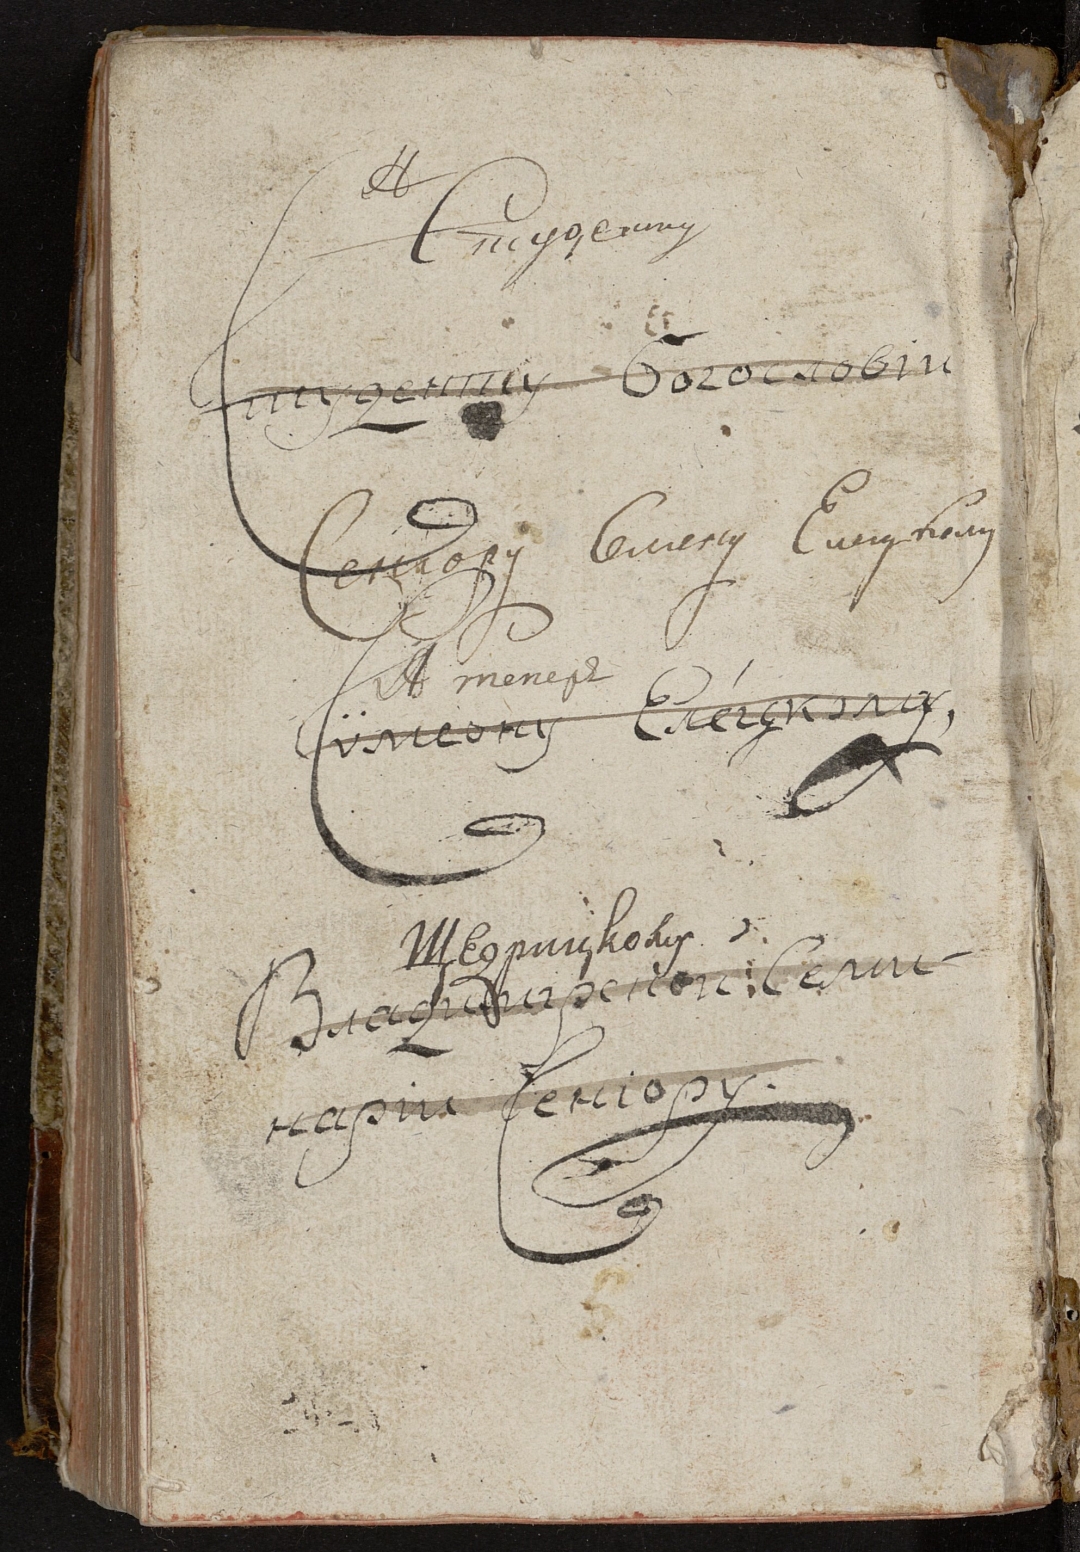 А
Студенту
Студенту Богословіи
Сеніору Семену Елецкому
А теперь
Сѵмеону Еле́цкому,
Шворицкому
Владимирской Семи-
наріи Сеніору.